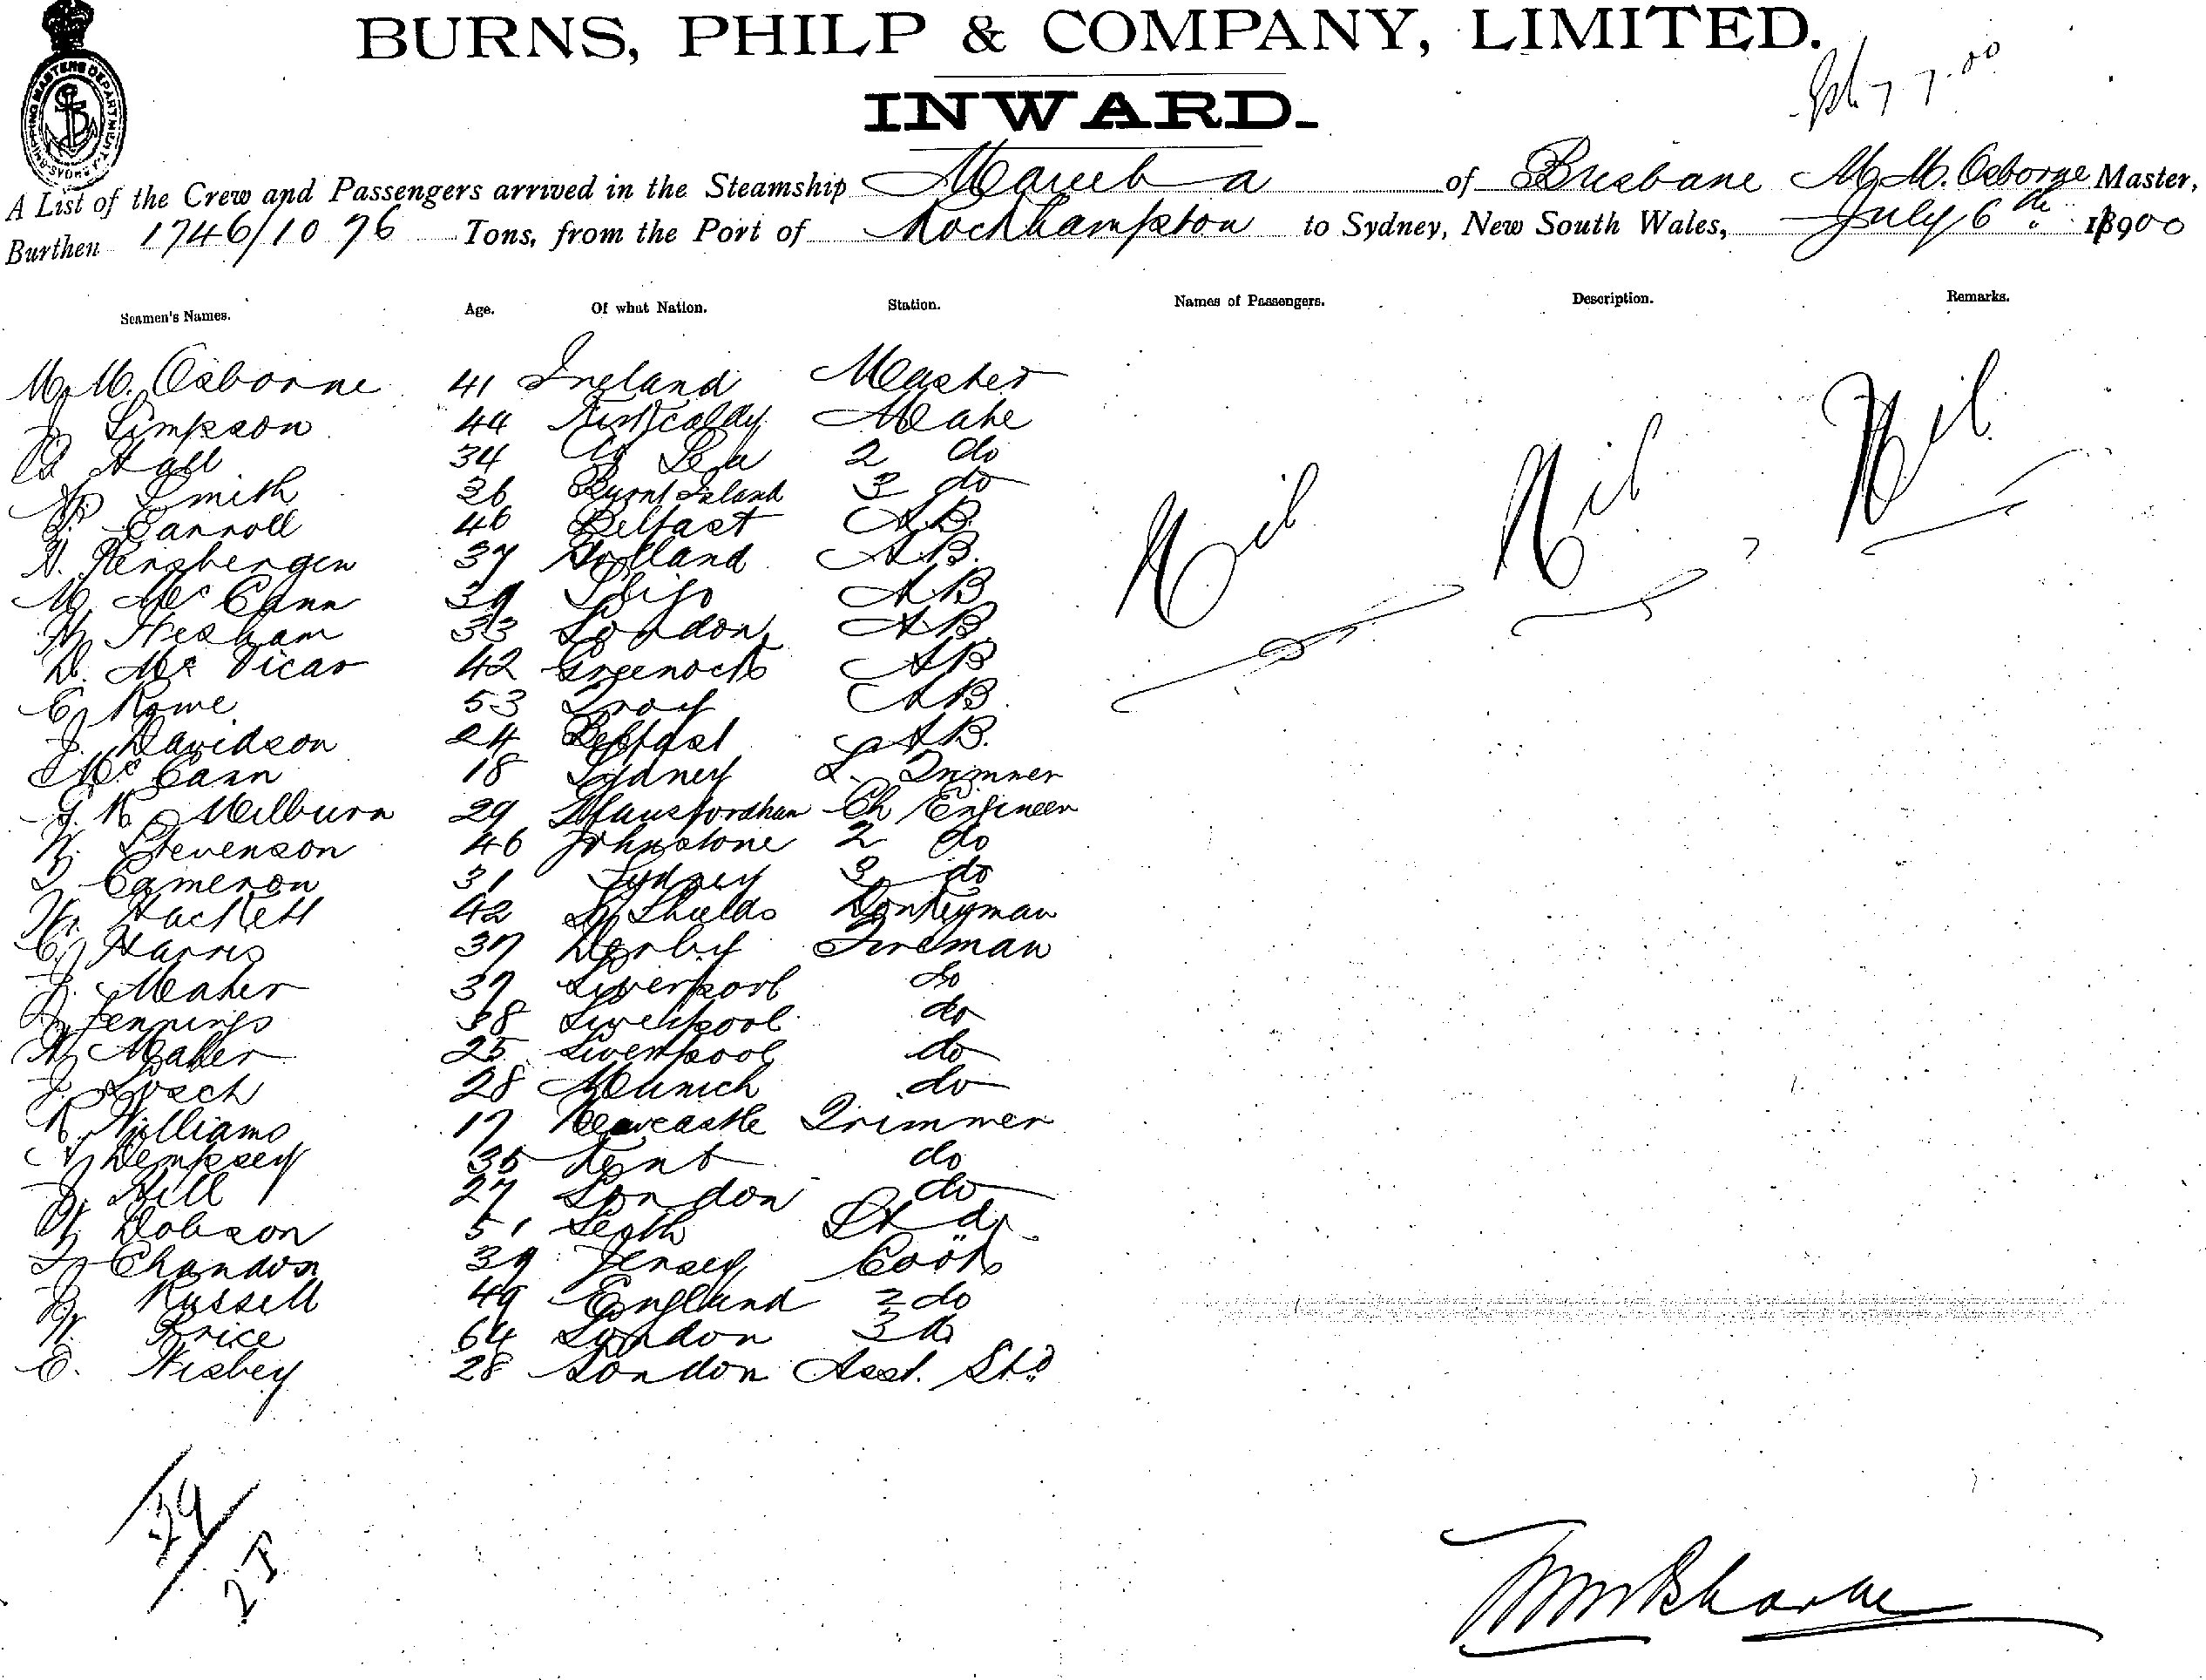 BURNS, PHILP & COMPANY, LIMITED.
INWARD.
7.7.00
SHIPPING MASTERS DEPARTMENT SYDNEY
A List of the Crew and Passengers arrived in the Steamship Mareeba of Brisbane M. M. Osborne Master,
Burthen 1746/1076 Tons, from the Port of Rockhampton to Sydney, New South Wales, July 6th 1900
Seamen's Names. Age. Of what Nation. Station. Names of Passengers. Description. Remarks.
M. M. Osborne 41 Ireland Master
J Simpson 44 Kirkcaldy Mate
Hall 34 At Sea 2 do
Smith 26 Burnt Island 3 do
Carroll 46 Belfast AB
Nil Nil Nil
H. Rensbergen 37 Holland AB.
M Mc Cann 39 Sligo AB
Hesham 33 London AB
D. Mc Vicar 42 Greenock AB
C Rowe 53 Troy AB
J. Davidson 24 Belfast AB.
Mc Cann 18 Sydney L. Trimmer
G. R Milburn 29 Ch Engineer
W. Stevenson 46 Johnstone 2 do
D Cameron 31 Sydney 3 do
W. Hackett 42 Sth Shields Donkeyman
C Harris 37 Derby Fireman
J. Maher 37 Liverpool do
Jennings 38 Liverpool do
Maher 25 Liverpool do
J 28 Munich do
R. Williams 17 Newcastle Trimmer
Dempsey 35 Kent do
J. Hill 27 London do
W Dobson 51 Leith Std
Chandos 39 Jersey Cook
Russell 49 England 2 do
W. Price 64 London 3 do
E. Nisbey 28 London Asst. Std
29
2 F
M M Osborne